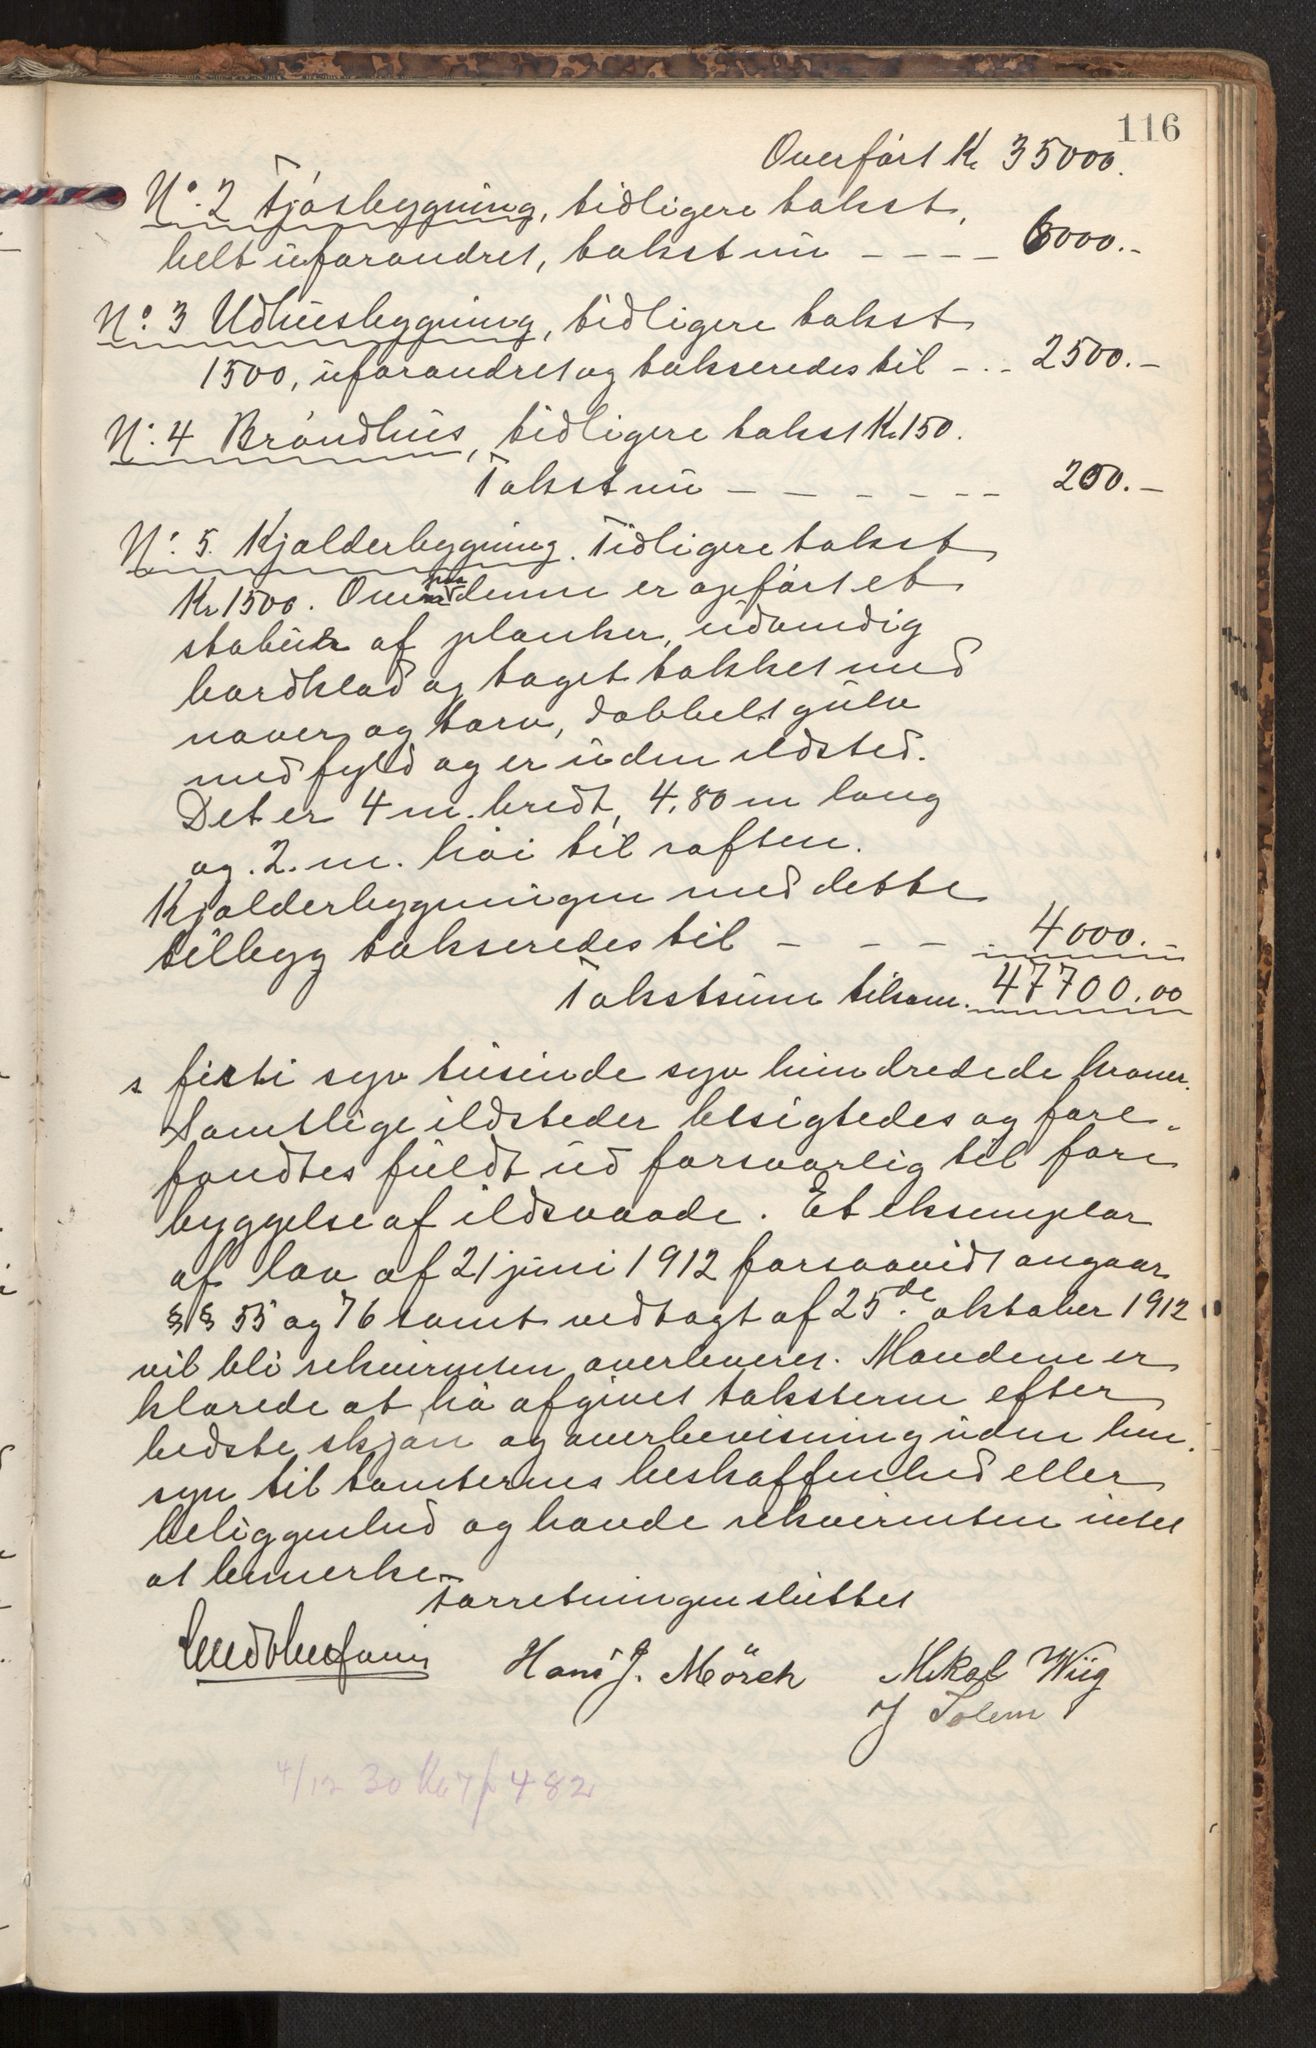 116
Overført Kr 35000.
No. 2 Fjøsbygning, tidligere takst,
helt uforandret, takst nu - - - - 6000.-
No. 3 Udhusbygning, tidligere takst
1500, uforandret og takseredes til - . - 2500.-
No. 4 Brøndhus, tidligere takst Kr. 150.
Takst nu - - - - - - 200.-
No. 5. Kjælderbygning. Tidligere takst
Kr 1500. Oven paa denne er opført et
stabur af planker, udvendig
bordklæd og taget tækket med
næver og torv, dobbelt gulv
med fyld og er uden ildsted.
Det er 4 m. bredt, 4,80 m lang
og. 2. m. høi til raften.
Kjælderbygningen med dette
tilbygg takseredes til - - - . 4000.-
Takstsum tilsam. 47700.00
s firti syv tusinde syv hundredede kroner.
Samtlige ildsteder besigtedes og fore-
fandtes fuldt ud forsvarlig til fore
byggelse af ildsvaade. Et eksemplar
af lov af 21 juni 1912 forsaavidt angaar
§§ 55 og 76 samt vedtægt af 25.de oktober 1912
vil bli rekvirenten overleveret. Mændene er
klærede at ha afgivet taksterne efter
bedste skjøn og overbevisning uden hen-
syn til tomternes beskaffenhed eller
beliggenhed og havde rekvirenten intet
at bemerke.
Forretningen sluttet
Hans J. Mörch Mikal Wiig
J Solem
4/12 30 Kr 7 p 482